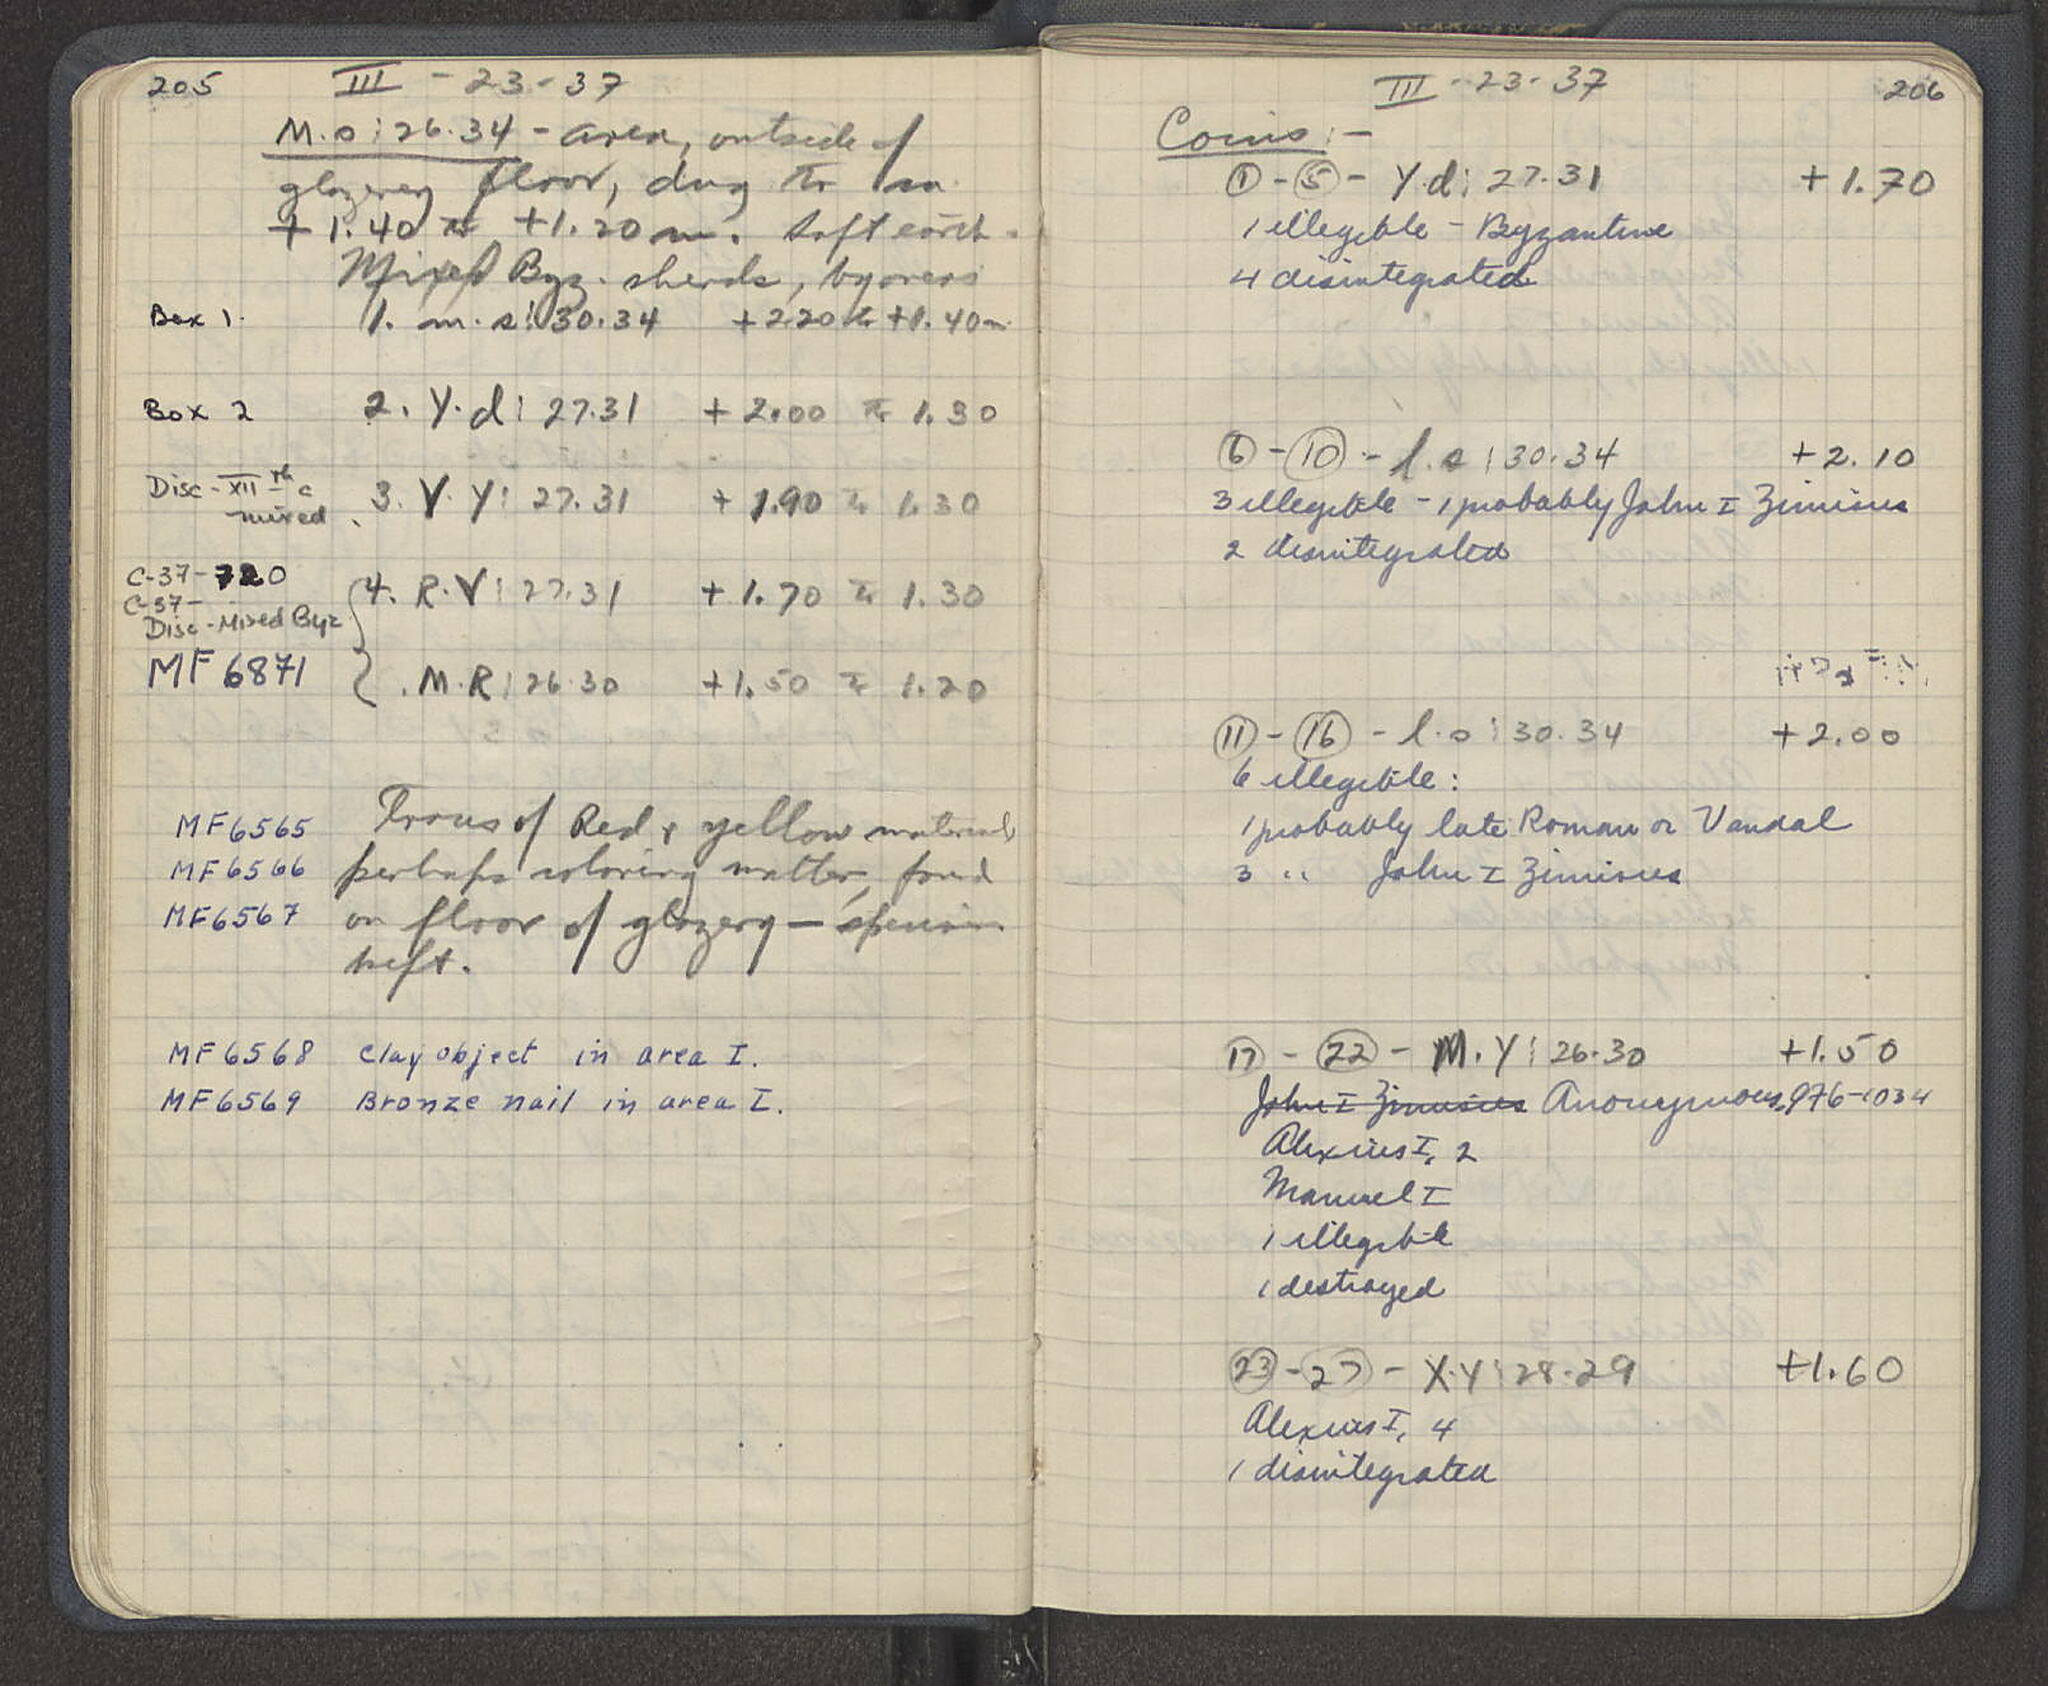 205 III - 23-37
M.o:26.34 - area, outside of
glazery floor, dug to
+1.40 to +1.20 m. Soft earth.
Mixed Byz. sherds,
Box 1. 1. m.s:30.34 +2.20 to +1.40 m.
Box 2 2. Y.d:27.31 +2.00 to 1.30
Disc - XIIth c
mixed 3. V.Y:27.31 +1.90 to 1.30
C-37-720
C-37-
4. R.V:27.31 +1.70 to 1.30
Disc - Mixed Byz
MF 6871 .M.R:26.30 +1.50 to 1.20
MF6565 of Red & yellow material
MF6566 perhaps coloring matter, found
MF6567 on floor of glazery —
kept.
MF6568 Clay object in area I.
MF6569 Bronze nail in area I.
III - 23-37 206
Coins:-
1 - 5 - Y.d:27.31 +1.70
1 illegible - Byzantine
4 disintegrated
6 - 10 - l.s:30.34 +2.10
3 illegible - 1 probably John I Zimisces
2 disintegrated
11 - 16 - l.o:30.34 +2.00
6 illegible:
1 probably late Roman or Vandal
3 " John I Zimisces
17 - 22 - M.Y:26.30 +1.50
John I Zimisces Anonymous, 976-1034
Alexius I, 2
Manuel I
1 illegible
1 destroyed
23 - 27 - X.Y:28.29 +1.60
Alexius I, 4
1 disintegrated